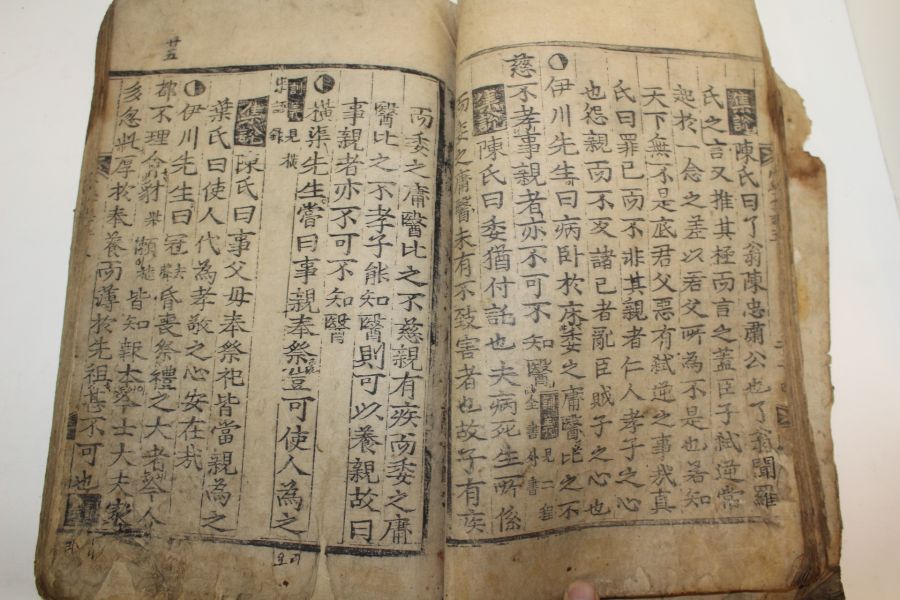 集說陳氏曰了翁陳忠肅公也了翁聞羅
氏之言又推其極而言之蓋臣子弑逆常
起於一念之差以君父所為不是也若知
天下無不是底君父惡有弑逆之事哉真
氏曰罪己而不非其親者仁人孝子之心
也怨親而不反諸己者亂臣賊子之心也
伊川先生曰病臥於床委之庸醫比之不
慈不孝事親者亦不可不知醫見二程全書外書
集說陳氏曰委猶付託也夫病死生所係
而委之庸醫未有不致害者也故子有疾
廿五
而委之庸醫比之不慈親有疾而委之庸
醫比之不孝子能知醫則可以養親故曰
事親者亦不可不知醫
橫渠先生嘗曰事親奉祭豈可使人為之
見橫渠語錄
集說陳氏曰事父母奉祭祀皆當親為之
葉氏曰使人代為孝敬之心安在哉
伊川先生曰冠去聲昏喪祭禮之大者今人
都不理會豺獺皆知報本今士大夫家
多忽此厚於奉養而薄於先祖甚不可也